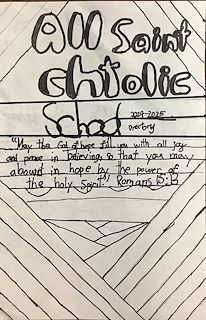 All Saint
Chtolic
School 2024-2025
Directory
"May the God of hope fill you with all joy
and peace in believing so that you may
abound in hope by the power of
the holy Spirit" Romans 15:13